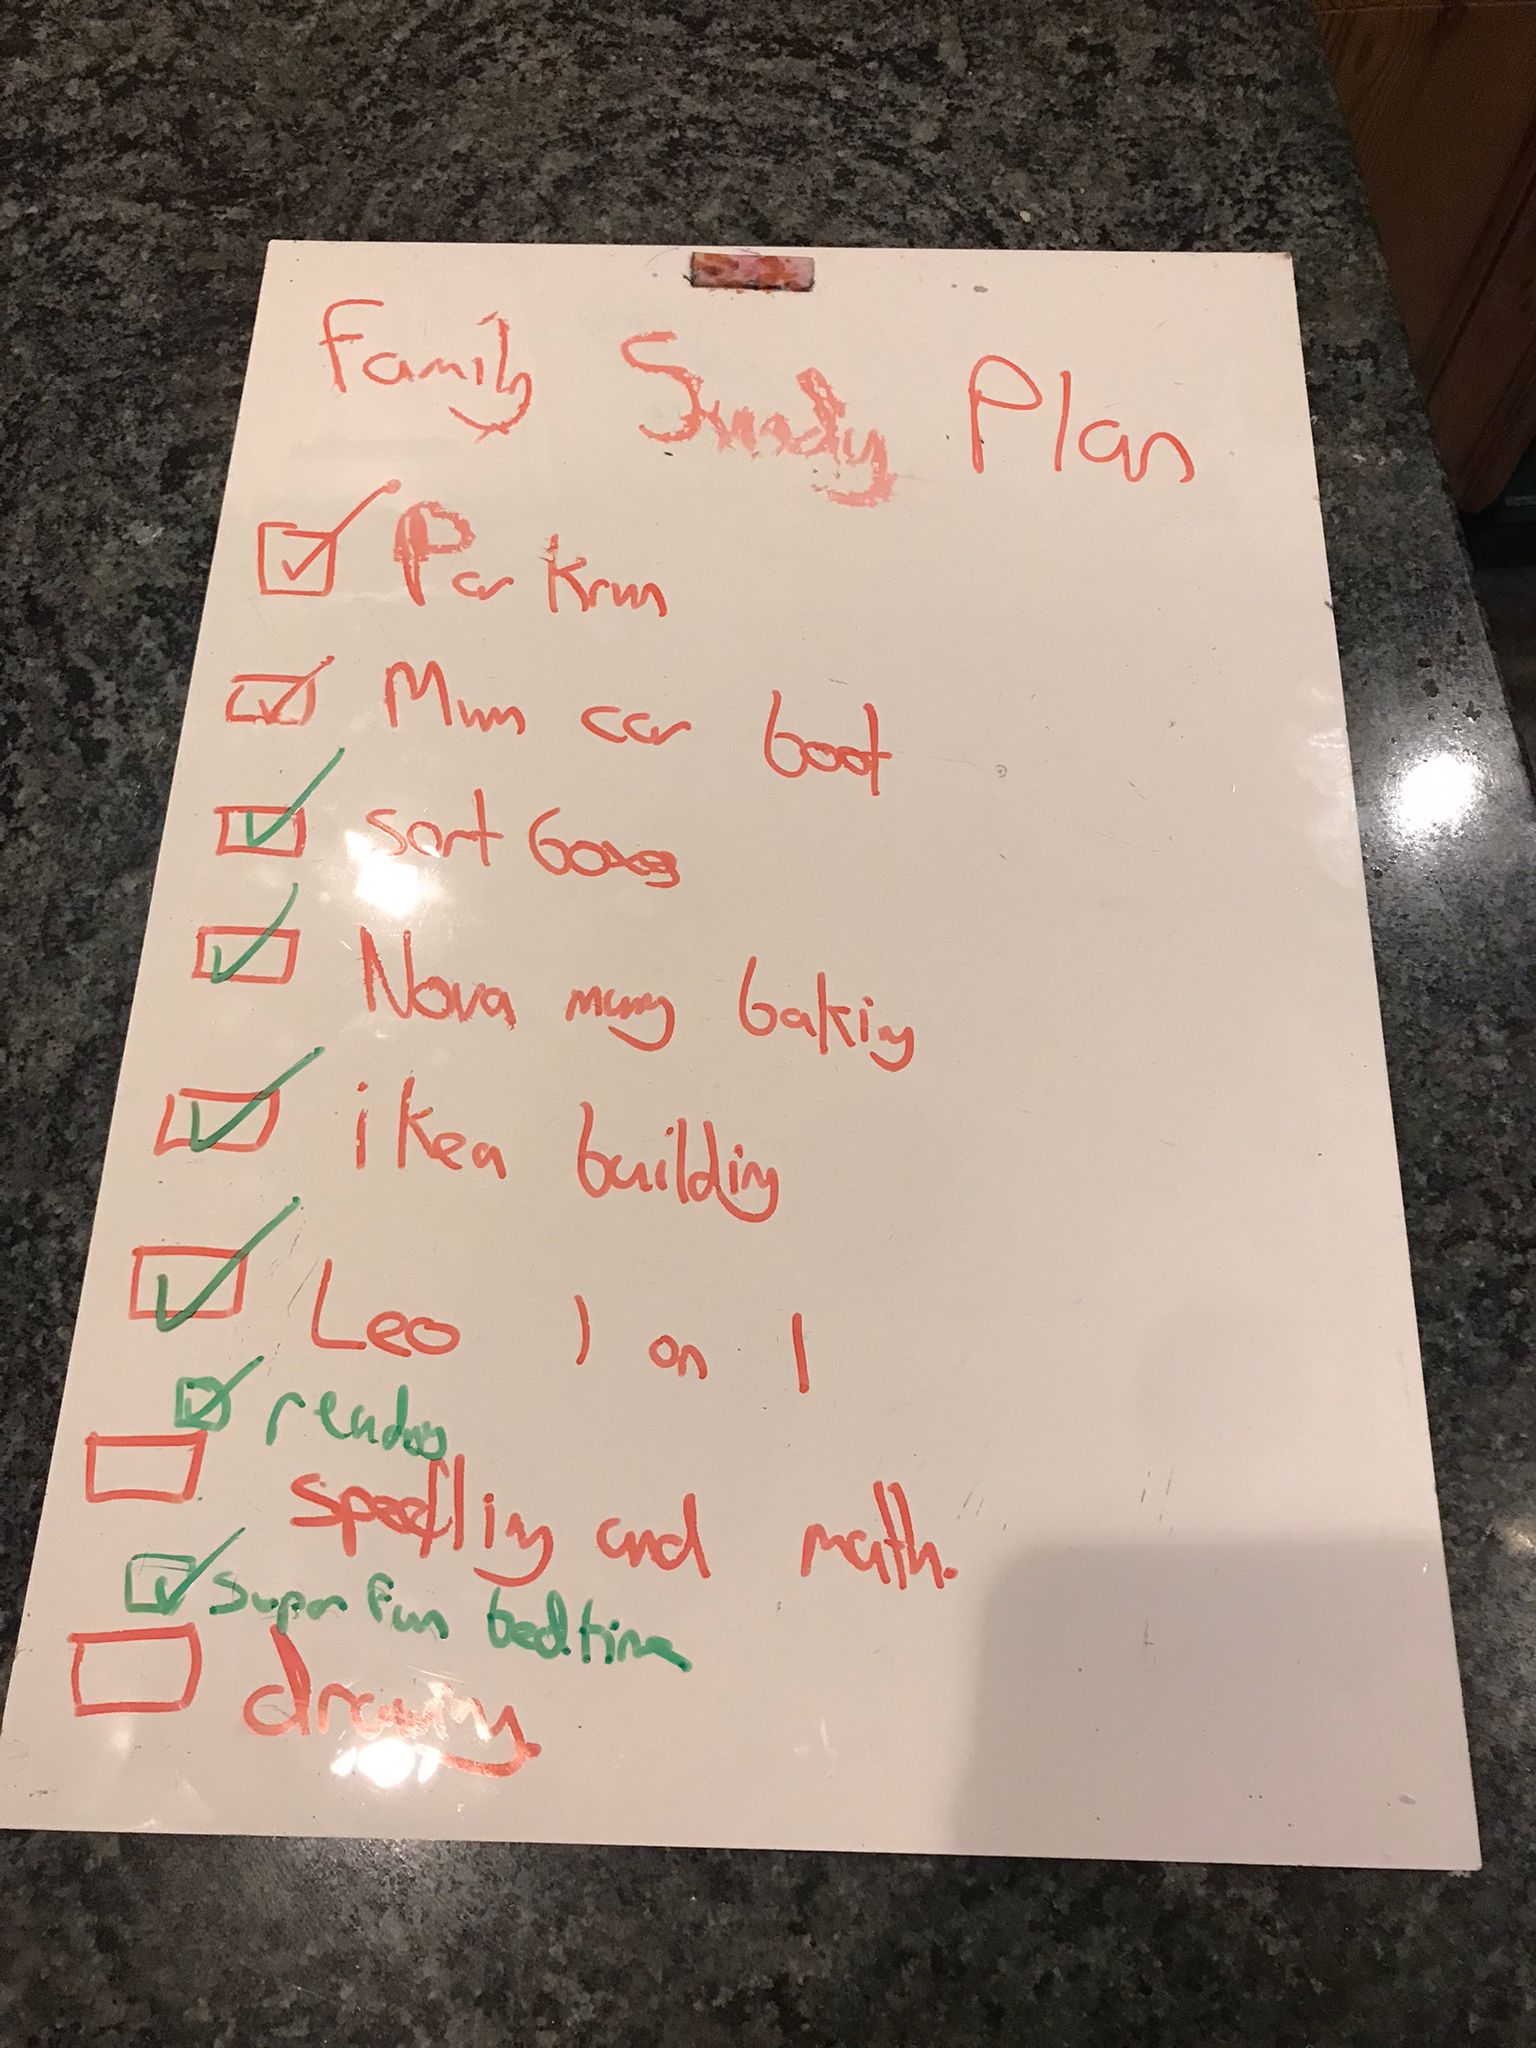 Family Sunday Plan
Parkrun
Mum car boot
sort boxes
Nova mumy baking
ikea building
Leo 1 on 1
reading
spelling and math.
super fun bedtime
drawing